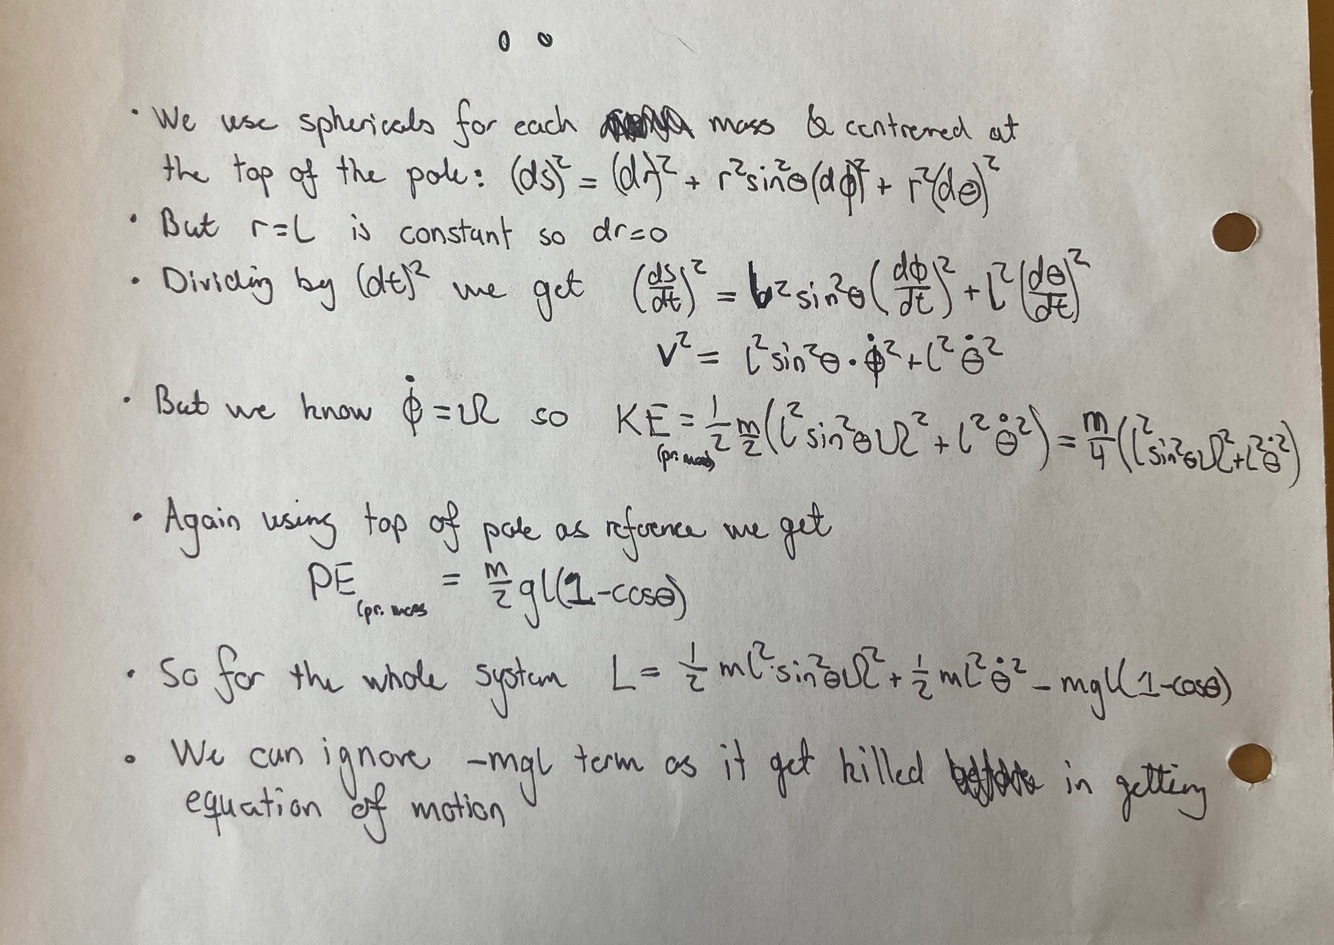 • We use sphericals for each mass & centrered at
the top of the pole: (ds)² = (dr)² + r²sin²θ(dϕ)² + r²(dθ)²
• But r=L is constant so dr=0
• Dividing by (dt)² we get (ds/dt)² = l²sin²θ(dϕ/dt)² + l²(dθ/dt)²
v² = l²sin²θ·ϕ̇² + l²θ̇²
• But we know ϕ̇ = Ω so KE = 1/2 m/2 (l²sin²θΩ² + l²θ̇²) = m/4 (l²sin²θΩ² + l²θ̇²)
(pr. mass)
• Again using top of pole as reference we get
PE = m/2 gl(1-cosθ)
(pr. mass
• So for the whole system L = 1/2 ml²·sin²θΩ² + 1/2 ml²θ̇² - mgl(1-cosθ)
• We can ignore -mgl term as it get killed in getting
equation of motion